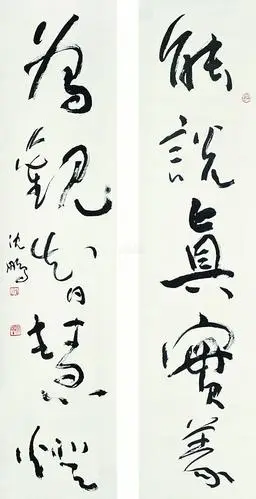 能說真實義
為觀智慧燈
沈鵬